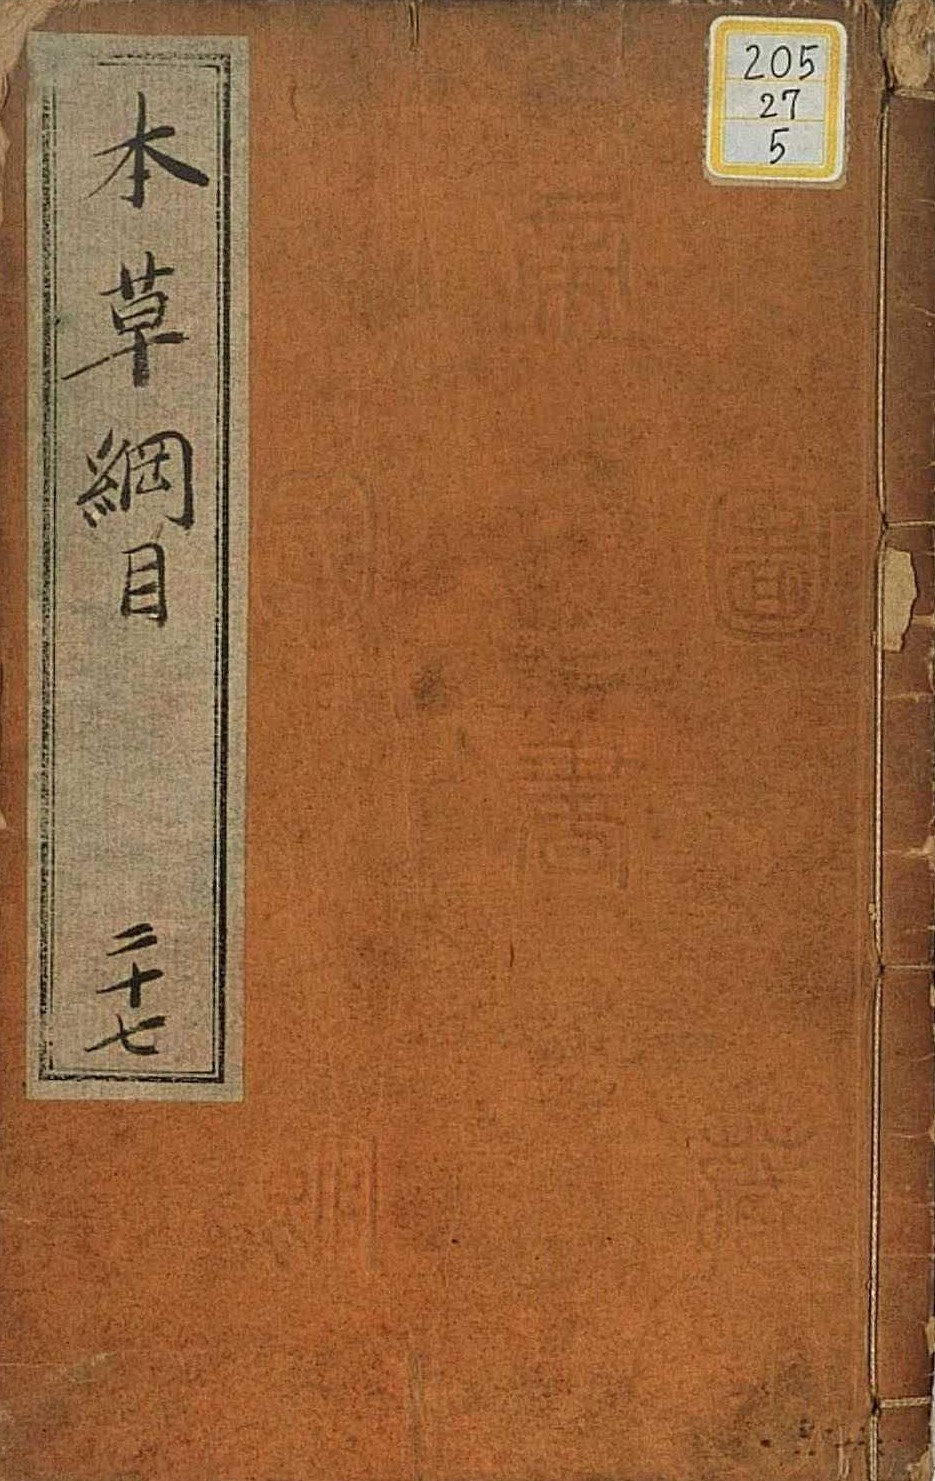 205
27
5
本草綱目
二十七